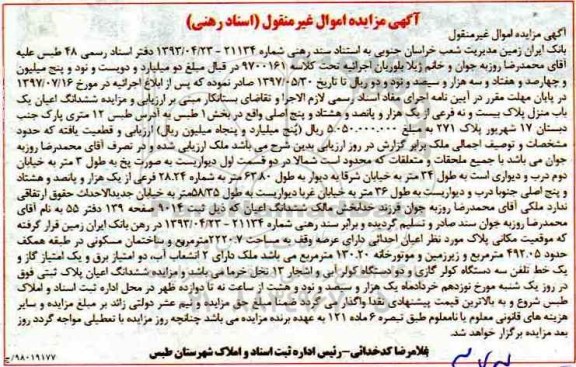 آگهی مزایده اموال غیرمنقول (اسناد رهنی)
آگهی مزایده اموال غیرمنقول
بانک ایران زمین مدیریت شعب خراسان جنوبی به استناد سند رهنی شماره ۲۱۱۳۴ - ۱۳۹۳/۰۴/۲۳ دفتر اسناد رسمی ۴۸ طبس علیه
آقای محمدرضا روزبه جوان و خانم ژیلا بلوریان اجرائیه تحت کلاسه ۹۷۰۰۱۶۱ در قبال مبلغ دو میلیارد و دویست و نود و پنج میلیون
و چهارصد و هفتاد و سه هزار و سیصد و نود و دو ریال تا تاریخ ۱۳۹۷/۰۵/۳۰ صادر نموده که پس از ابلاغ اجرائیه در مورخ ۱۳۹۷/۰۷/۱۶
در پایان مهلت مقرر در آیین نامه اجرای مفاد اسناد رسمی لازم الاجرا و تقاضای بستانکار مبنی بر ارزیابی و مزایده ششدانگ اعیان یک
باب منزل پلاک بیست و نه فرعی از یک هزار و پانصد و هشتاد و پنج اصلی واقع در بخش۱ طبس به آدرس طبس ۱۲ متری پارک جنب
دبستان ۱۷ شهریور پلاک ۲۷۱ به مبلغ ۵.۰۵۰.۰۰۰.۰۰۰ ریال (پنج میلیارد و پنجاه میلیون ریال) ارزیابی و قطعیت یافته که حدود
مشخصات و توصیف اجمالی ملک برابر گزارش در روز ارزیابی بدین شرح می باشد ملک ارزیابی شده و در تصرف آقای محمدرضا روزبه
جوان می باشد با جمیع ملحقات و متعلقات که محدود است شمالا در دو قسمت اول دیواریست به صورت پخ به طول ۳ متر به خیابان
دوم درب و دیواری است به طول ۲۴ متر به خیابان شرقا به دیوار به طول ۶۲.۸۰ متر به شماره ۲۸.۲۴ فرعی از یک هزار و پانصد و هشتاد
و پنج اصلی جنوبا درب و دیواریست به طول ۳۶ متر به خیابان غربا دیواریست بطول ۵۸/۳۵متر به خیابان جدیدالاحداث حقوق ارتفاقی
ندارد ملکی آقای محمدرضا روزبه جوان فرزند خدابخش مالک ششدانگ اعیان که ذیل ثبت ۶۹۱۴ صفحه ۱۳۹ دفتر ۵۵ به نام آقای
محمدرضا روزبه جوان سند صادر و تسلیم گردیده و برابر سند رهنی شماره ۲۱۱۳۴ - ۱۳۹۳/۰۴/۲۳ در رهن بانک ایران زمین قرار گرفته
که موقعیت مکانی پلاک مورد نظر اعیان احداثی دارای عرصه وقف به مساحت ۲۲۲۰.۷مترمربع و ساختمان مسکونی در طبقه همکف
حدود ۴۹۲.۰۵ مترمربع و زیرزمین و موتورخانه ۱۳۰.۲۰ مترمربع می باشد ملک دارای ۲ انشعاب آب، دو امتیاز برق و یک امتیاز گاز و
یک خط تلفن سه دستگاه کولر گازی و دو دستگاه کولر آبی و اشجار ۱۲ نخل خرما می باشد و مزایده ششدانگ اعیان پلاک ثبتی فوق
در روز یک شنبه مورخ نوزدهم خردادماه یک هزار و سیصد و نود و هشت از ساعت نه تا دوازده ظهر در محل اداره ثبت اسناد و املاک
طبس شروع و به بالاترین قیمت پیشنهادی نقدا واگذار می گردد ضمنا علاوه بر مبلغ مزایده و نیم عشر دولتی زائد بر مبلغ مزایده و سایر
هزینه های قانونی معلوم یا نامعلوم طبق تبصره ۶ ماده ۱۲۱ به عهده برنده مزایده می باشد چنانچه روز مزایده با تعطیلی مواجه گردد روز
بعد مزایده برگزار خواهد شد.
غلامرضا کدخدائی-رئیس اداره ثبت اسناد و املاک شهرستان طبس
۹۸۰۱۹۱۷۷/خ